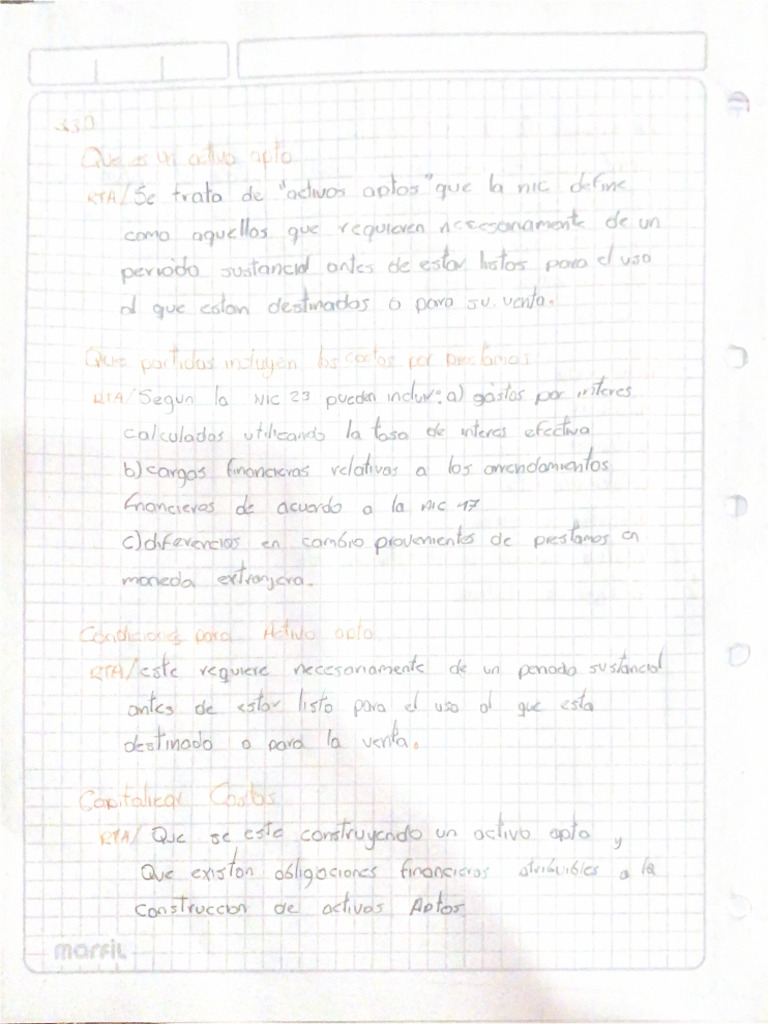 Que es un activo apto
RTA/ Se trata de "activos aptos" que la nic define
como aquellos que requieren necesariamente de un
periodo sustancial antes de estar listos para el uso
al que estan destinados o para su venta.
Que partidas incluyen los costos por prestamos
RTA/ Segun la NIC 23 pueden incluir: a) gastos por interes
calculados utilizando la tasa de interes efectiva
b) cargas financieras relativas a los arrendamientos
financieros de acuerdo a la nic 17
c) diferencias en cambio provenientes de prestamos en
moneda extranjera.
Condiciones para Activo apto
RTA/ este requiere necesariamente de un periodo sustancial
antes de estar listo para el uso al que esta
destinado o para la venta.
Capitalizar Costos
RTA/ Que se este construyendo un activo apto y
Que existan obligaciones financieras atribuibles a la
Construccion de activos Aptos
marfil